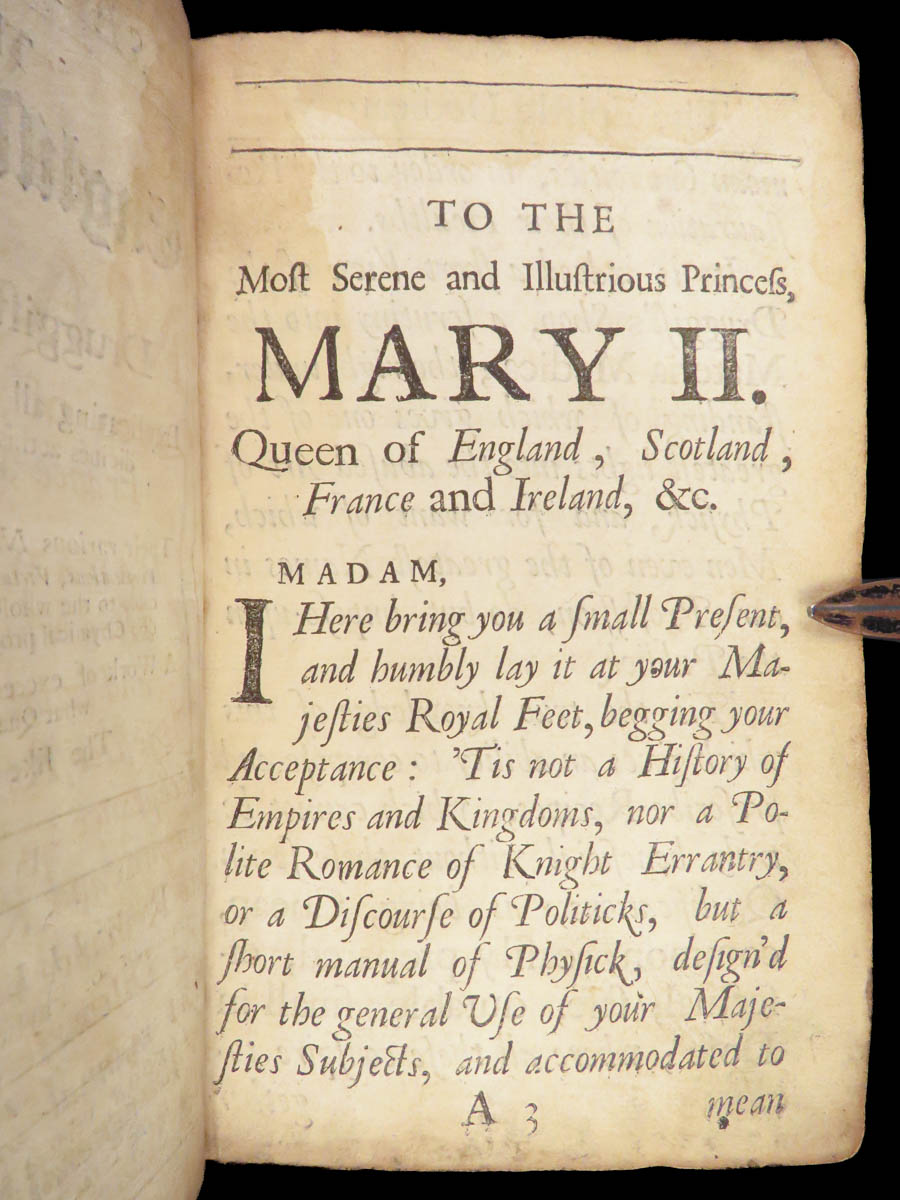 TO THE
Moſt Serene and Illuſtrious Princeſs,
MARY II.
Queen of England, Scotland,
France and Ireland, &c.
MADAM,
I Here bring you a ſmall Preſent,
and humbly lay it at your Ma-
jeſties Royal Feet, begging your
Acceptance: 'Tis not a Hiſtory of
Empires and Kingdoms, nor a Po-
lite Romance of Knight Errantry,
or a Diſcourſe of Politicks, but a
ſhort manual of Phyſick, deſign'd
for the general Uſe of your Maje-
ſties Subjects, and accommodated to
A 3 mean